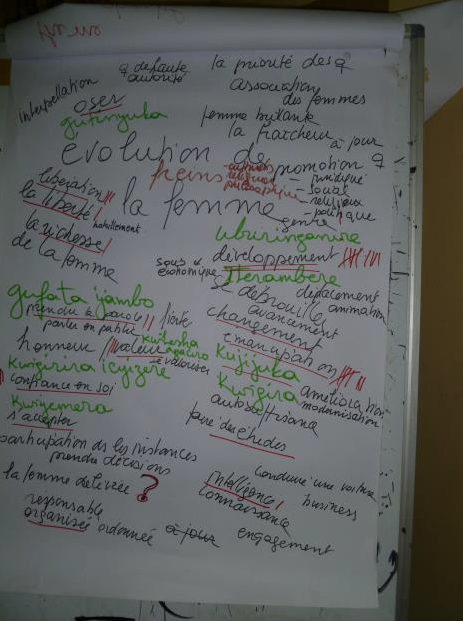 ♀ défauté la priorité des ♀
autorité
interpellation association
oser des femmes
gutinyuka femme brillante
la fraîcheur à jour
évolution de promotion ♀
freins - culturels - juridique
religieux - social
philosophique - religieux
- politique
libération
la liberté la femme
habillement genre
la richesse uburinganire
de la femme développement
sous ♀
économique Iterambere
se débrouille déplacement
gufata ijambo avancement animation
prendre la parole fierté changement
parler en public
honneur valeur kwihesha émancipation
agaciro
se valoriser
Kwigirira icyizere Kujijuka
confiance en soi Kwigira amélioration
modernisation
Kwiyemera autosuffisance
s'accepter faire des études
participation ds les instances
prendre décisions conduire une voiture
la femme délivrée ? intelligence business
connaissance
responsable
organisée ordonnée à jour engagement